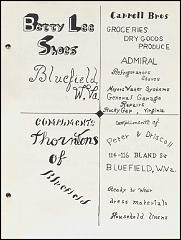 Betty Lee
Shoes
Bluefield
W. Va.
Carroll Bros
GROCERIES
DRY GOODS
PRODUCE
ADMIRAL
Refrigerators
Stoves
Myers Water Systems
General Garage
Repairs
Rocky Gap, Virginia
COMPLIMENTS
Thorntons
of
Bluefield
Compliments of
Peter & Driscoll
114-116 BLAND St
BLUEFIELD, W.Va.
Ready to Wear
dress materials
Household linens